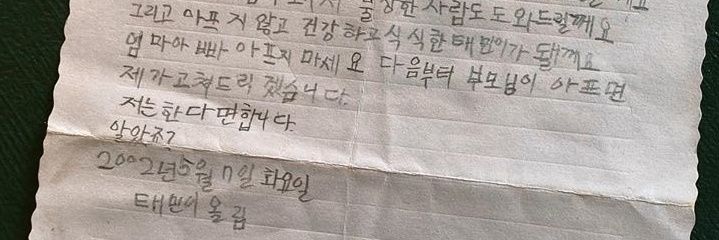 불쌍한 사람도 도와드릴께요
그리고 아프지 않고 건강하고 씩씩한 태민이가 될께요
엄마아빠 아프지 마세요 다음부터 부모님이 아프면
제가고쳐드리겠습니다.
저는한다면합니다.
알았죠?
2002년5월 7일 화요일
태민이 올림